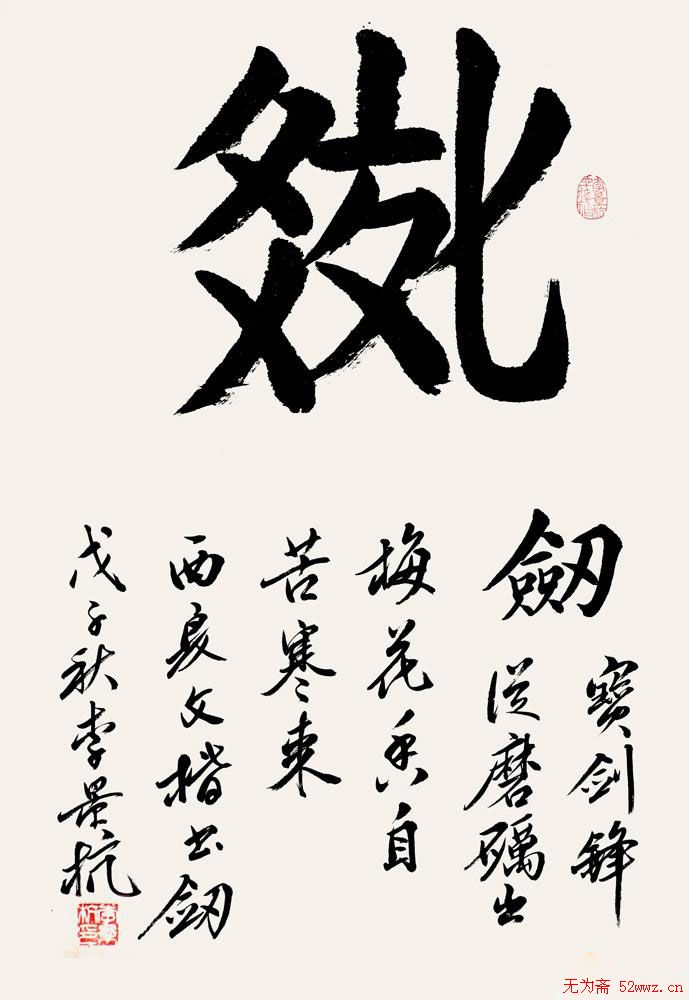 劔
寶劍鋒
從磨礪出
梅花香自
苦寒來
西夏文楷書劔
戊子秋李景杭
无为斋 52wwz.cn